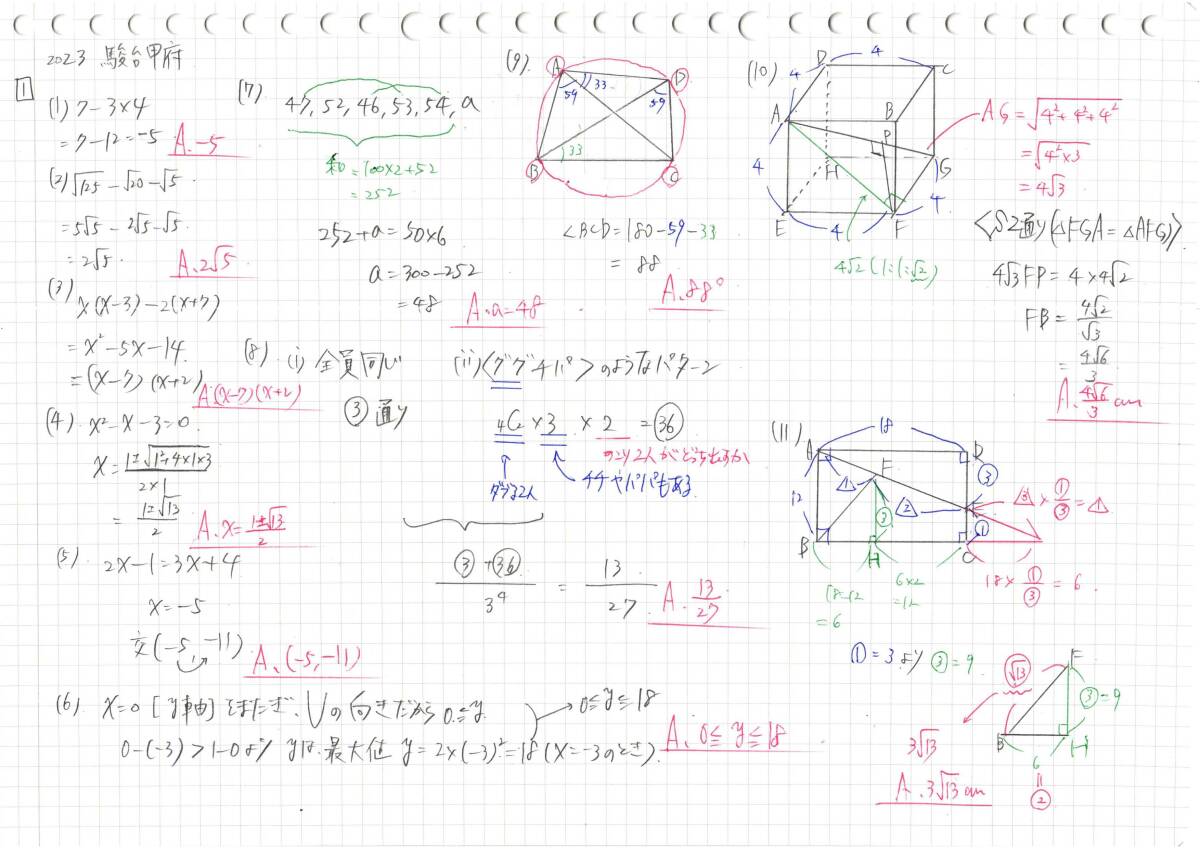 2023 駿台甲府
1
(1) 7-3×4
=7-12=-5
A.-5
(2) √125-√20-√5
=5√5-2√5-√5
=2√5
A.2√5
(3)
x(x-3)-2(x+7)
=x²-5x-14
=(x-7)(x+2)
A(x-7)(x+2)
(4). x²-x-3=0.
x=1±√1²+4×1×3
2×1
=1±√13
2
A.x=1±√13
2
(5).
2x-1=3x+4
x=-5
交(-5,-11)
A、(-5,-11)
(6) x=0[y軸]をまたぎ、Uの向きだから 0≦y
0-(-3)>1-0より yは、最大値 y=2×(-3)²=18(x=-3のとき).
0≦y≦18
A、0≦y≦18
(7)
47,52,46,53,54,a
和=100×2+52
=252
252+a=50×6
a=300-252
=48
A.a=48
(8). (i) 全員同じ
③通り
(ii)<ググチパ>のようなパターン
4C2×3×2=㊱
のこり2人がどっち出すか
ダブる2人
チチやパパもある
③+㊱
3⁴
=
13
27
A. 13
27
(9).
A
D
B
C
33
59
59
33
∠BCD=180-59-33
=88
A.88°
(10)
D
4
C
4
A
B
P
4
H
G
4
E
4
F
4√2(1:1:√2)
AG=√4²+4²+4²
=√4²×3
=4√3
<S2通り(△FGA=△AFG)>
4√3FP=4×4√2
FB=4√2
√3
=4√6
3
A.4√6
3
cm
(11)
18
A
D
F
③
12
△1
△2
③
①
△3×①
③
=△1
B
H
C
18-12
=6
6×2
=12
18×①
③
=6.
①=3より ③=9
√13
F
③=9
B
H
6
=
②
3√13
A.3√13cm